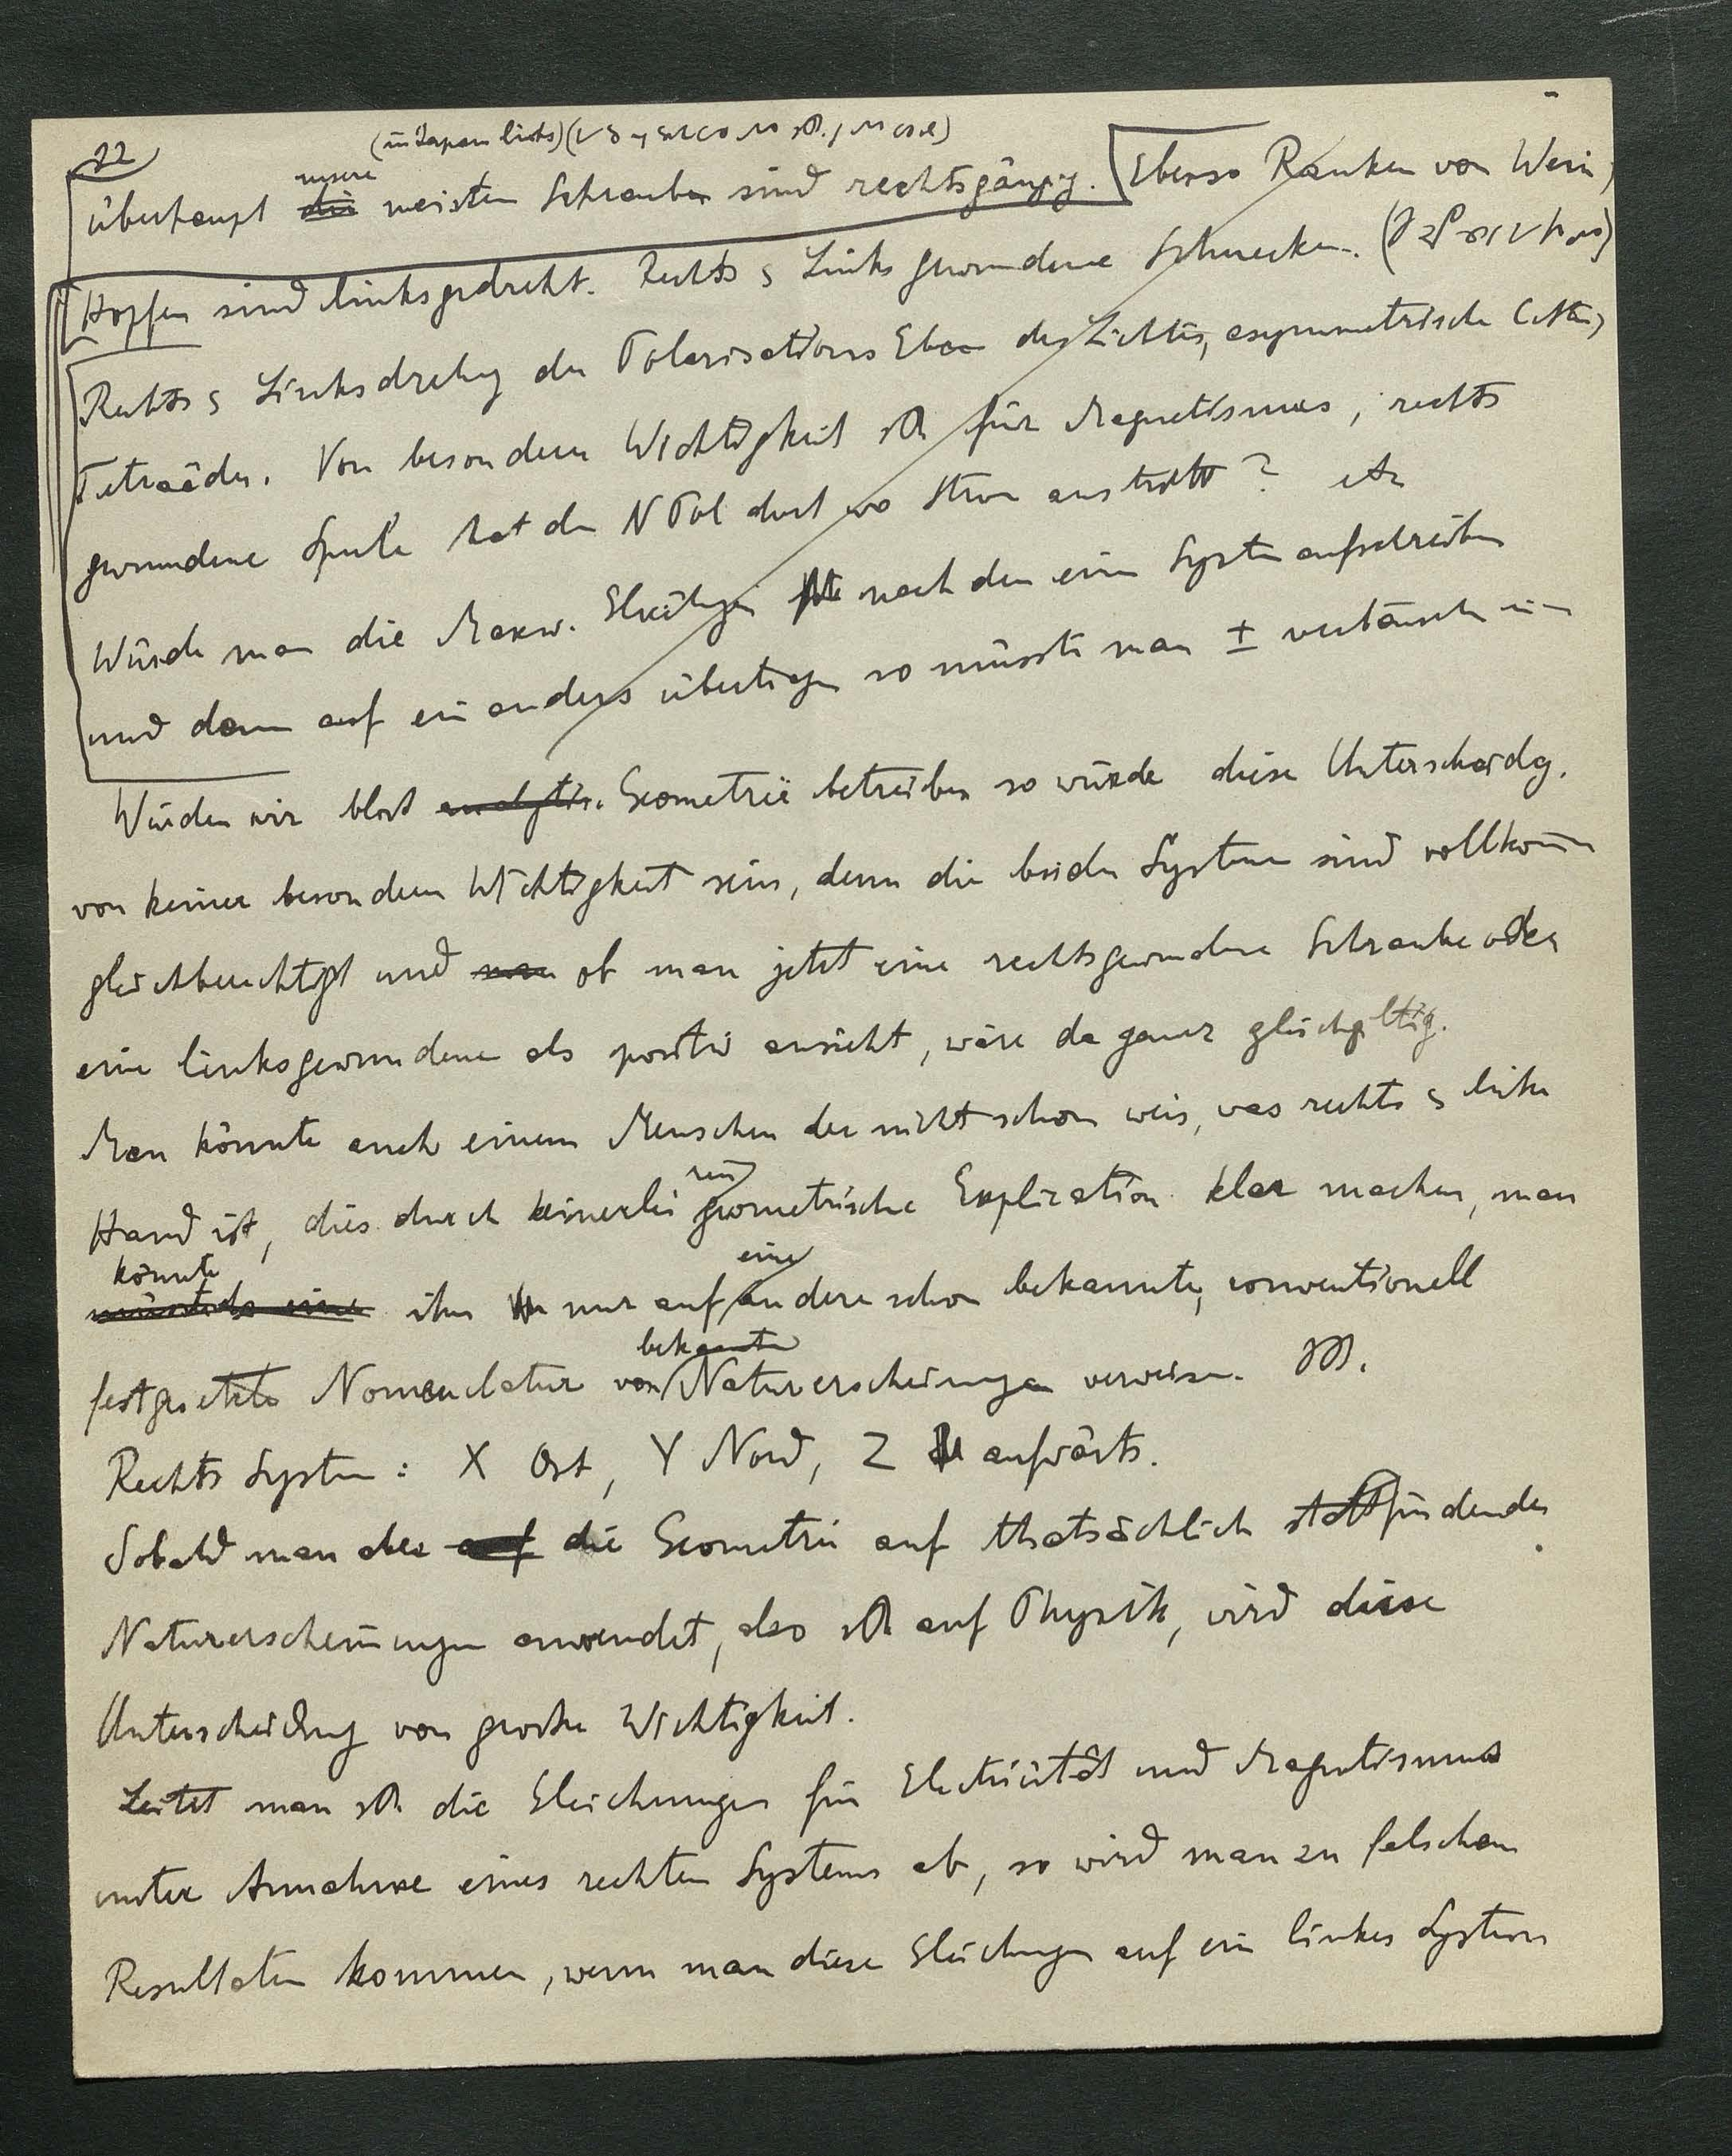 22
(in Japan links)
unsere
überhaupt die meisten Schrauben sind rechtsgängig. Ebenso Ranken von Wein,
Hopfen sind linksgedreht. Rechts & Links gewundene Schnecken.
Rechts & Linksdrehg der PolarisationsEbene des Lichtes, asymmetrische
Tetraëder. Von besonderer Wichtigkeit für Magnetismus, rechts
gewundene Spule hat den N Pol dort wo Strom austritt? etc
Würde man die Maxw. Gleichgen nach dem einen System aufschreiben
und dann auf ein anders übertragen so müsste man ± vertauschen
Würden wir blos analytis. Geometrie betreiben so würde diese Unterscheidg.
von keiner besondern Wichtigkeit sein, denn die beiden Systeme sind vollkommen
gleichberechtigt und ob man jetzt eine rechtsgewundene Schraube oder
eine linksgewundene als positiv ansieht, wäre da ganz gleichgiltig.
Man könnte auch einem Menschen der nicht schon weis, was rechts & linke
rein
Hand ist, dies durch keinerlei geometrische Explication klar machen, man
könnte eine
müsste da eine ihn nur auf andere schon bekannte, conventionell
bekannte
festgesetzte Nomenclatur von Naturerscheinungen verweisen.
Rechts System: X Ost, Y Nord, Z aufwärts.
Sobald man aber auf die Geometrie auf thatsächlich stattfindende
Naturerscheinungen anwendet, also auf Physik, wird diese
Unterscheidung von grosser Wichtigkeit.
Leitet man die Gleichungen für Electricität und Magnetismus
unter Annahme eines rechten Systems ab, so wird man zu falschen
Resultaten kommen, wenn man diese Gleichungen auf ein linkes System